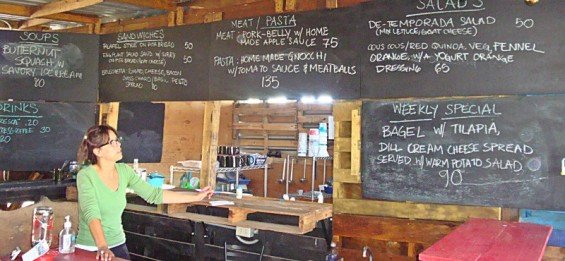 SOUPS
BUTTERNUT
SQUASH W/
SAVORY ICECREAM
80
DRINKS
20
ESPRESSO
SANDWICHES
FALAFEL STYLE ON PITA BREAD 50
EGGPLANT SALAD SAND. W/ CURRY
50
BRUSCHETTA
SPREAD
MEAT / PASTA
MEAT / PORK-BELLY W/ HOME
MADE APPLE SAUCE 75
PASTA: HOME MADE GNOCCHI
W/ TOMATO SAUCE & MEATBALLS
135
SALADS
DE-TEMPORADA SALAD 50
(MIX LETTUCE/GOAT CHEESE)
COUS COUS/RED QUINOA, VEG, FENNEL
ORANGE, W/ A YOGURT ORANGE
DRESSING 65
WEEKLY SPECIAL
BAGEL W/ TILAPIA,
DILL CREAM CHEESE SPREAD
SERVED W/ WARM POTATO SALAD
90